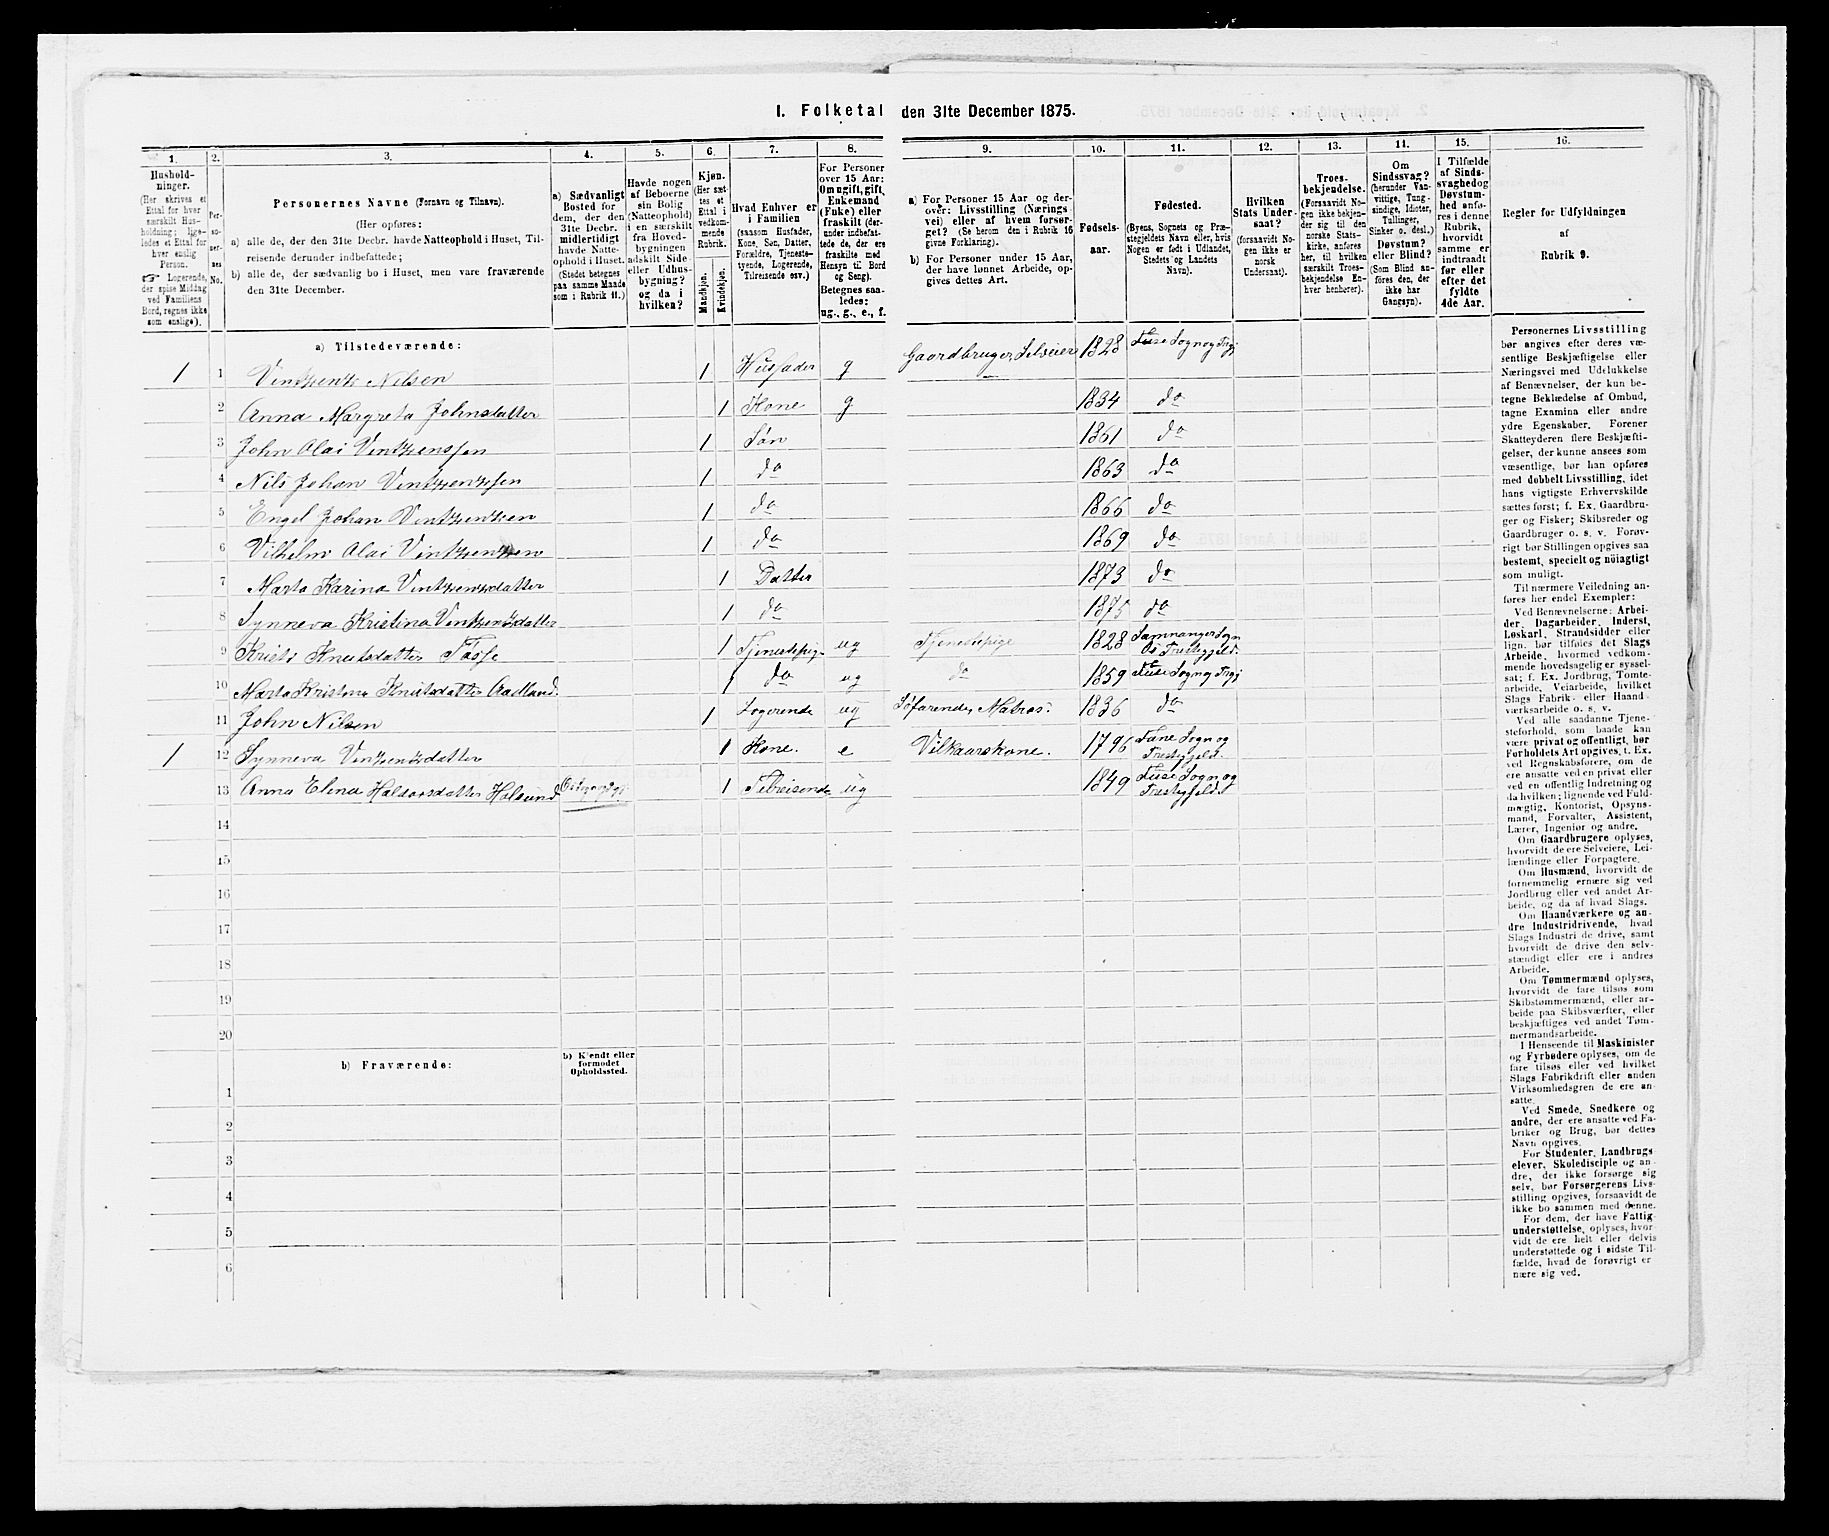 I. Folketal den 31te December 1875.
1. 2. 3. 4. 5. 6. 7. 8. 9. 10. 11. 12. 13. 11. 15. 16.
Hushold-
ninger.
(Her skrives et
Ettal for hver
særskilt Hus-
holdning; lige-
ledes et Ettal for
hver enslig
Person.
Logerende,
der spise Middag
ved Familiens
Bord, regnes ikke
som enslige).
Per-
so-
ner-
nes
No.
Personernes Navne (Fornavn og Tilnavn).
(Her opføres:
a) alle de, der den 31te Decbr. havde Natteophold i Huset, Til-
reisende derunder indbefattede;
b) alle de, der sædvanlig bo i Huset, men vare fraværende
den 31te December.
a) Sædvanligt
Bosted for
dem, der den
31te Decbr.
midlertidigt
havde Natte-
ophold i Huset.
(Stedet betegnes
paa samme Maade
som i Rubrik 11.)
Havde nogen
af Beboerne
sin Bolig
(Natteophold)
i en særskilt
fra Hoved-
bygningen
adskilt Side-
eller Udhus-
bygning?
og da i
hvilken?
Kjøn.
(Her sæt-
tes et
Ettal i
vedkom-
mende
Rubrik.
Mandkjøn.
Kvindekjøn.
Hvad Enhver er
i Familien
(saasom Husfader,
Kone, Søn, Datter,
Forældre, Tjeneste-
tyende, Logerende,
Tilreisende osv.)
For Personer
over 15 Aar:
Om ugift, gift,
Enkemand
(Enke) eller
fraskilt (der-
under indbefat-
tede de, der ere
fraskilte med
Hensyn til Bord
og Seng).
Betegnes saa-
ledes:
ug., g., e., f.
a) For Personer 15 Aar og der-
over: Livsstilling (Nærings-
vei) eller af hvem forsør-
get? (Se herom den i Rubrik 16
givne Forklaring).
b) For Personer under 15 Aar,
der have lønnet Arbeide, op-
gives dettes Art.
Fødsels-
aar.
Fødested.
(Byens, Sognets og Præ-
stegjeldets Navn eller, hvis
Nogen er født i Udlandet,
Stedets og Landets
Navn).
Hvilken
Stats Under-
saat?
(forsaavidt No-
gen ikke er
norsk
Undersaat).
Troes-
bekjendelse.
(Forsaavidt No-
gen ikke bekjen-
der sig til den
norske Stats-
kirke, anføres
her, til hvilken
særskilt Troes-
bekjendelse En-
hver henhører).
Om
Sindssvag?
(herunder Van-
vittige, Tung-
sindige, Idioter,
Tullinger,
Sinker o. desl.)
Døvstum?
eller Blind?
(Som Blind an-
føres den, der
ikke har
Gangsyn).
I Tilfælde
af Sinds-
svaghed og
Døvstum-
hed anfø-
res i denne
Rubrik,
hvorvidt
samme er
indtraadt
før eller
efter det
fyldte
4de Aar.
Regler for Udfyldningen
af
Rubrik 9.
a) Tilstedeværende:
1 1 Vintzents Nilsen 1 Husfader g Gaardbruger, Selveier 1828 Fuse Sogn og Prgj
2 Anna Margreta Johnsdatter 1 Kone g 1834 do
3 John Olai Vintzenssen 1 Søn 1861 do
4 Nils Johan Vintzentzsen 1 do 1863 do
5 Engel Johan Vintzentzen 1 do 1866 do
6 Vilhelm Olai Vintzentzen 1 do 1869 do
7 Marta Karina Vintzentzdatter 1 Datter 1873 do
8 Synneva Kristina Vintzentsdatter 1 do 1875 do
9 Knutsdatter 1 Tjenestepig ug Tjenestepige 1828 Samnanger Sogn
Os Prestegjeld.
10 Marta Kristina Knutsdatter Aadland. 1 do ug do 1859 Fuse Sogn og Prgj
11 John Nilsen 1 Logerende ug Søfarende, Matros. 1836 do
1 12 Synneva Vintzentsdatter 1 Kone. e Vilkaarskone. 1796 Fane Sogn og
Prestegjeld.
13 Anna Elena Haldorsdatter Holsund 1 Tilreisende ug 1849 Fuse Sogn og
Prestegjeld
14
15
16
17
18
19
20
b) Fraværende:
b) Kjendt eller
formodet
Opholdssted.
1
2
3
4
5
6
Personernes Livsstilling
bør angives efter deres væ-
sentlige Beskjæftigelse eller
Næringsvei med Udelukkelse
af Benævnelser, der kun be-
tegne Beklædelse af Ombud,
tagne Examina eller andre
ydre Egenskaber. Forener
Skatteyderen flere Beskjæfti-
gelser, der kunne ansees som
væsentlige, bør han opføres
med dobbelt Livsstilling, idet
hans vigtigste Erhvervskilde
sættes først; f. Ex. Gaardbru-
ger og Fisker; Skibsreder og
Gaardbruger o. s. v. Forøv-
rigt bør Stillingen opgives saa
bestemt, specielt og nøiagtigt
som muligt.
Til nærmere Veiledning an-
føres her endel Exempler:
Ved Benævnelserne: Arbei-
der, Dagarbeider, Inderst,
Løskarl, Strandsidder eller
lign. bør tilføies det Slags
Arbeide, hvormed vedkom-
mende hovedsagelig er syssel-
sat; f. Ex. Jordbrug, Tomte-
arbeide, Veiarbeide, hvilket
Slags Fabrik- eller Haand-
værksarbeide o. s. v.
Ved alle saadanne Tjene-
steforhold, som baade kan
være privat og offentligt, bør
Forholdets Art opgives, t. Ex.
ved Regnskabsførere, om de
ere ansatte ved en privat eller
en offentlig Indretning og
da hvilken; lignende ved Fuld-
mægtig, Kontorist, Opsyns-
mand, Forvalter, Assistent,
Lærer, Ingeniør og andre.
Om Gaardbrugere oplyses,
hvorvidt de ere Selveiere, Lei-
lændinge eller Forpagtere.
Om Husmænd, hvorvidt de
fornemmelig ernære sig ved
Jordbrug eller ved andet Ar-
beide, og da af hvad Slags.
Om Haandværkere og an-
dre Industridrivende, hvad
Slags Industri de drive, samt
hvorvidt de drive den selv-
stændigt eller ere i andres
Arbeide.
Om Tømmermænd oplyses,
hvorvidt de fare tilsøs som
Skibstømmermænd, eller ar-
beide paa Skibsværfter, eller
beskjæftiges ved andet Tøm-
mermandsarbeide.
I Henseende til Maskinister
og Fyrbødere oplyses, om de
fare tilsøs eller ved hvilket
Slags Fabrikdrift eller anden
Virksomhedsgren de ere an-
satte.
Ved Smede, Snedkere og
andre, der ere ansatte ved Fa-
briker og Brug, bør dettes
Navn opgives.
For Studenter, Landbrugs-
elever, Skoledisciple og an-
dre, der ikke forsørge sig
selv, bør Forsørgerens Livs-
stilling opgives, forsaavidt de
ikke bo sammen med denne.
For dem, der have Fattig-
understøttelse, oplyses, hvor-
vidt de ere helt eller delvis
understøttede og i sidste Til-
fælde, hvad de forøvrigt er-
nære sig ved.